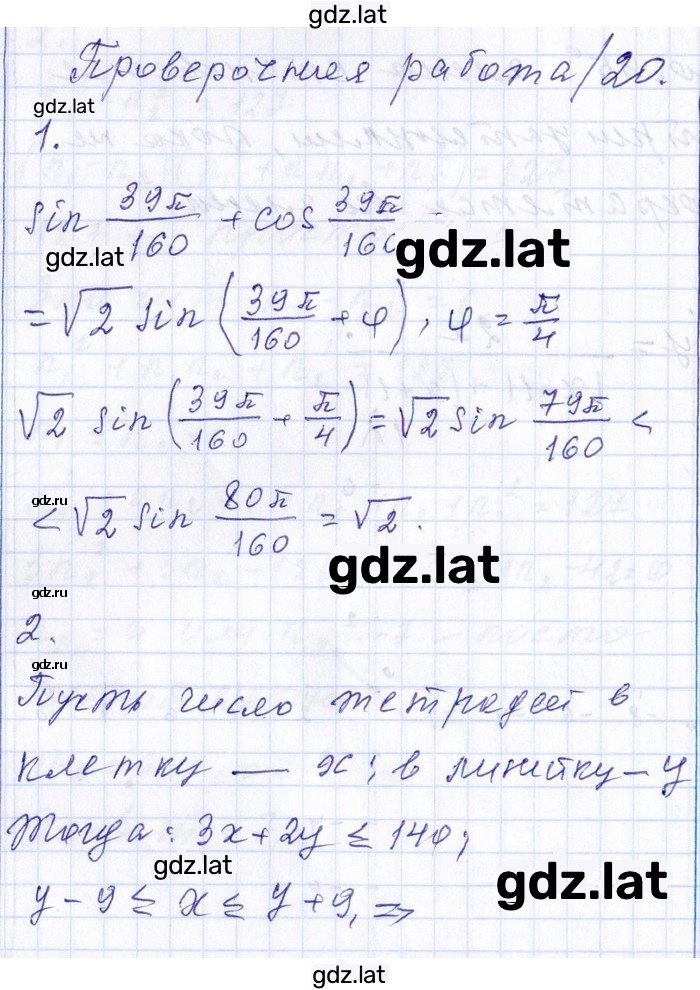 gdz.lat
Проверочная работа/20.
gdz.lat
1.
sin 39π/160 + cos 39π/160
gdz.lat
gdz.lat
= √2 sin (39π/160 + φ), φ = π/4
√2 sin (39π/160 + π/4) = √2 sin 79π/160 <
gdz.ru
< √2 sin 80π/160 = √2.
gdz.lat
gdz.ru
2.
gdz.ru
Пусть число тетрадей в
клетку — x; в линейку – y
Тогда: 3x + 2y ≤ 140;
gdz.lat
gdz.lat
y – 9 ≤ x ≤ y + 9, ⇒
gdz.lat